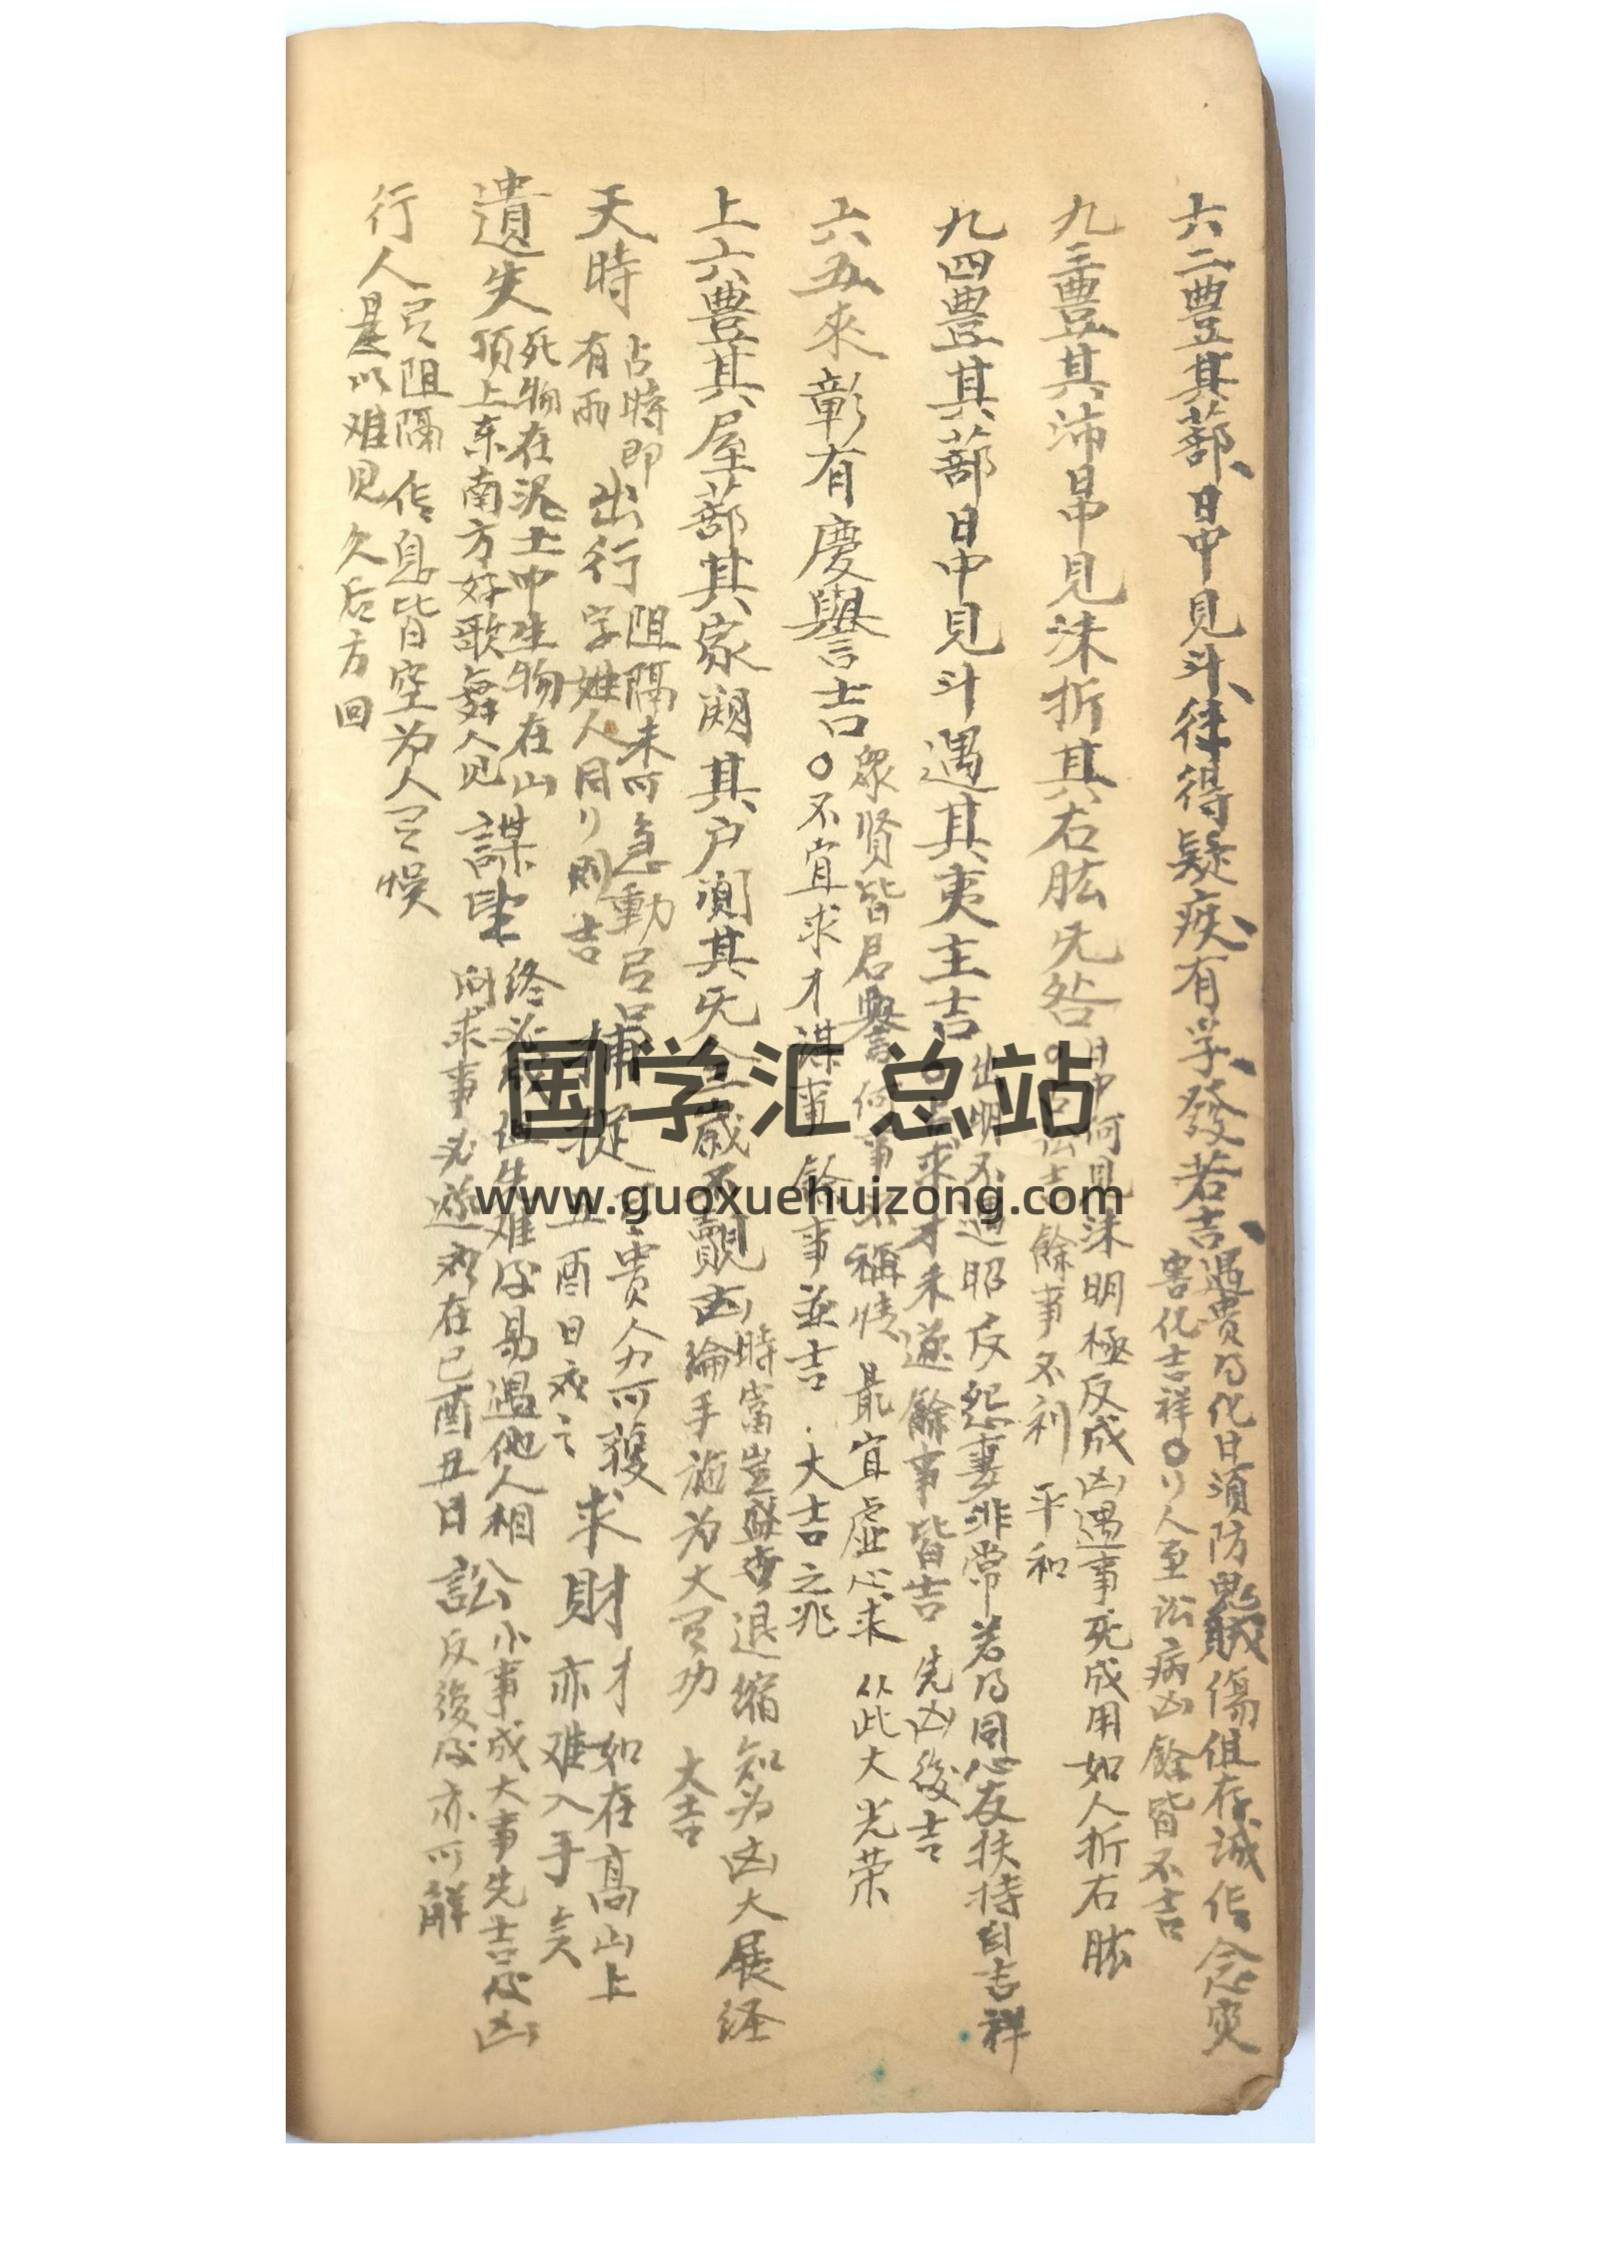 六二豊其蔀日中見斗徃得疑疾有孚發若吉
遇費乃化日須防鬼賊傷但存誠信念灾
害化吉祥○リ人至讼病凶餘皆不吉
九三豊其沛日中見沬折其右肱旡咎
日中何見沬明極反成凶遇事死成用如人折右肱
吉餘事不利 平和
九四豊其蔀日中見斗遇其夷主吉
出明不遇昭反怨妻非常若乃同心友扶持自吉祥
求才未遂餘事皆吉 先凶後吉
六五來彰有慶譽吉
衆贤皆君譽何事不稱情 最宜虚心来 从此大光荣
○不宜求才謀事餘事並吉 大吉之兆
上六豊其屋蔀其家闚其户闃其旡人三歲不覿凶
時富豈盤杳退缩知为凶大展经
綸手施为大有功 大吉
天時
占時即
有雨
出行
阻隔未可急動
字姓人同リ则吉
捕捉
貴人力可獲
丑酉日戌之
求財
才如在高山上
亦难入手矣
遺失
死物在泥土中生物在山
頂上东南方好歌舞人见
謀望
终必但先难後易遇他人相
向求事必遂在巳酉丑日
訟
小事成大事先吉後凶
反後後亦可解
行人
阻隔信息皆空为人悮
是以难见久后方回
国学汇总站
www.guoxuehuizong.com